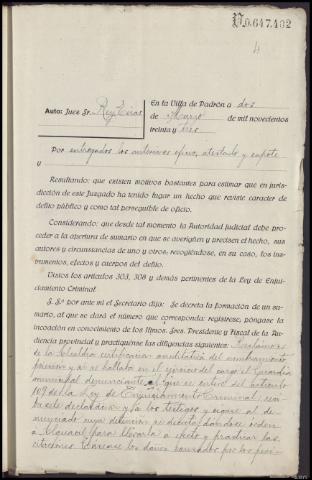 N.0.647.402
4
Auto: Juez Sr. Rey Eiras
En la Villa de Padrón a dos
de Marzo de mil novecientos
treinta y tres
Por entregados los anteriores oficio, atestado y
y
Resultando: que existen motivos bastantes para estimar que en juris-
dicción de este Juzgado ha tenido lugar un hecho que reviste caracter de
delito público y como tal perseguible de oficio.
Considerando: que desde tal momento la Autoridad judicial debe pro-
ceder a la apertura de sumario en que se averigüen y precisen el hecho, sus
autores y circunstancias de uno y otros; recogiéndose, en su caso, los ins-
trumentos, efectos y cuerpos del delito.
Vistos los artículos 303, 308 y demás pertinentes de la Ley de Enjui-
ciamiento Criminal
S. Sª por ante mi el Secretario dijo: Se decreta la formación de un su-
mario, al que se dará el número que corresponda: regístrese, póngase la
incoación en conocimiento de los Iltmos. Sres. Presidente y Fiscal de la Au-
diencia provincial y practíquense las diligencias siguientes:
de la certificación del nombramiento
y si se hallaba en el ejercicio del cargo el Guardia
municipal denunciante al que se enterará del artículo
109 de la Ley de Enjuiciamiento Criminal,
declaración y a los testigos y oígase al de-
nunciado cuya detención se decreta, dándose orden
al Alguacil para llevarla a efecto y practicar las
citaciones. los daños causados por los